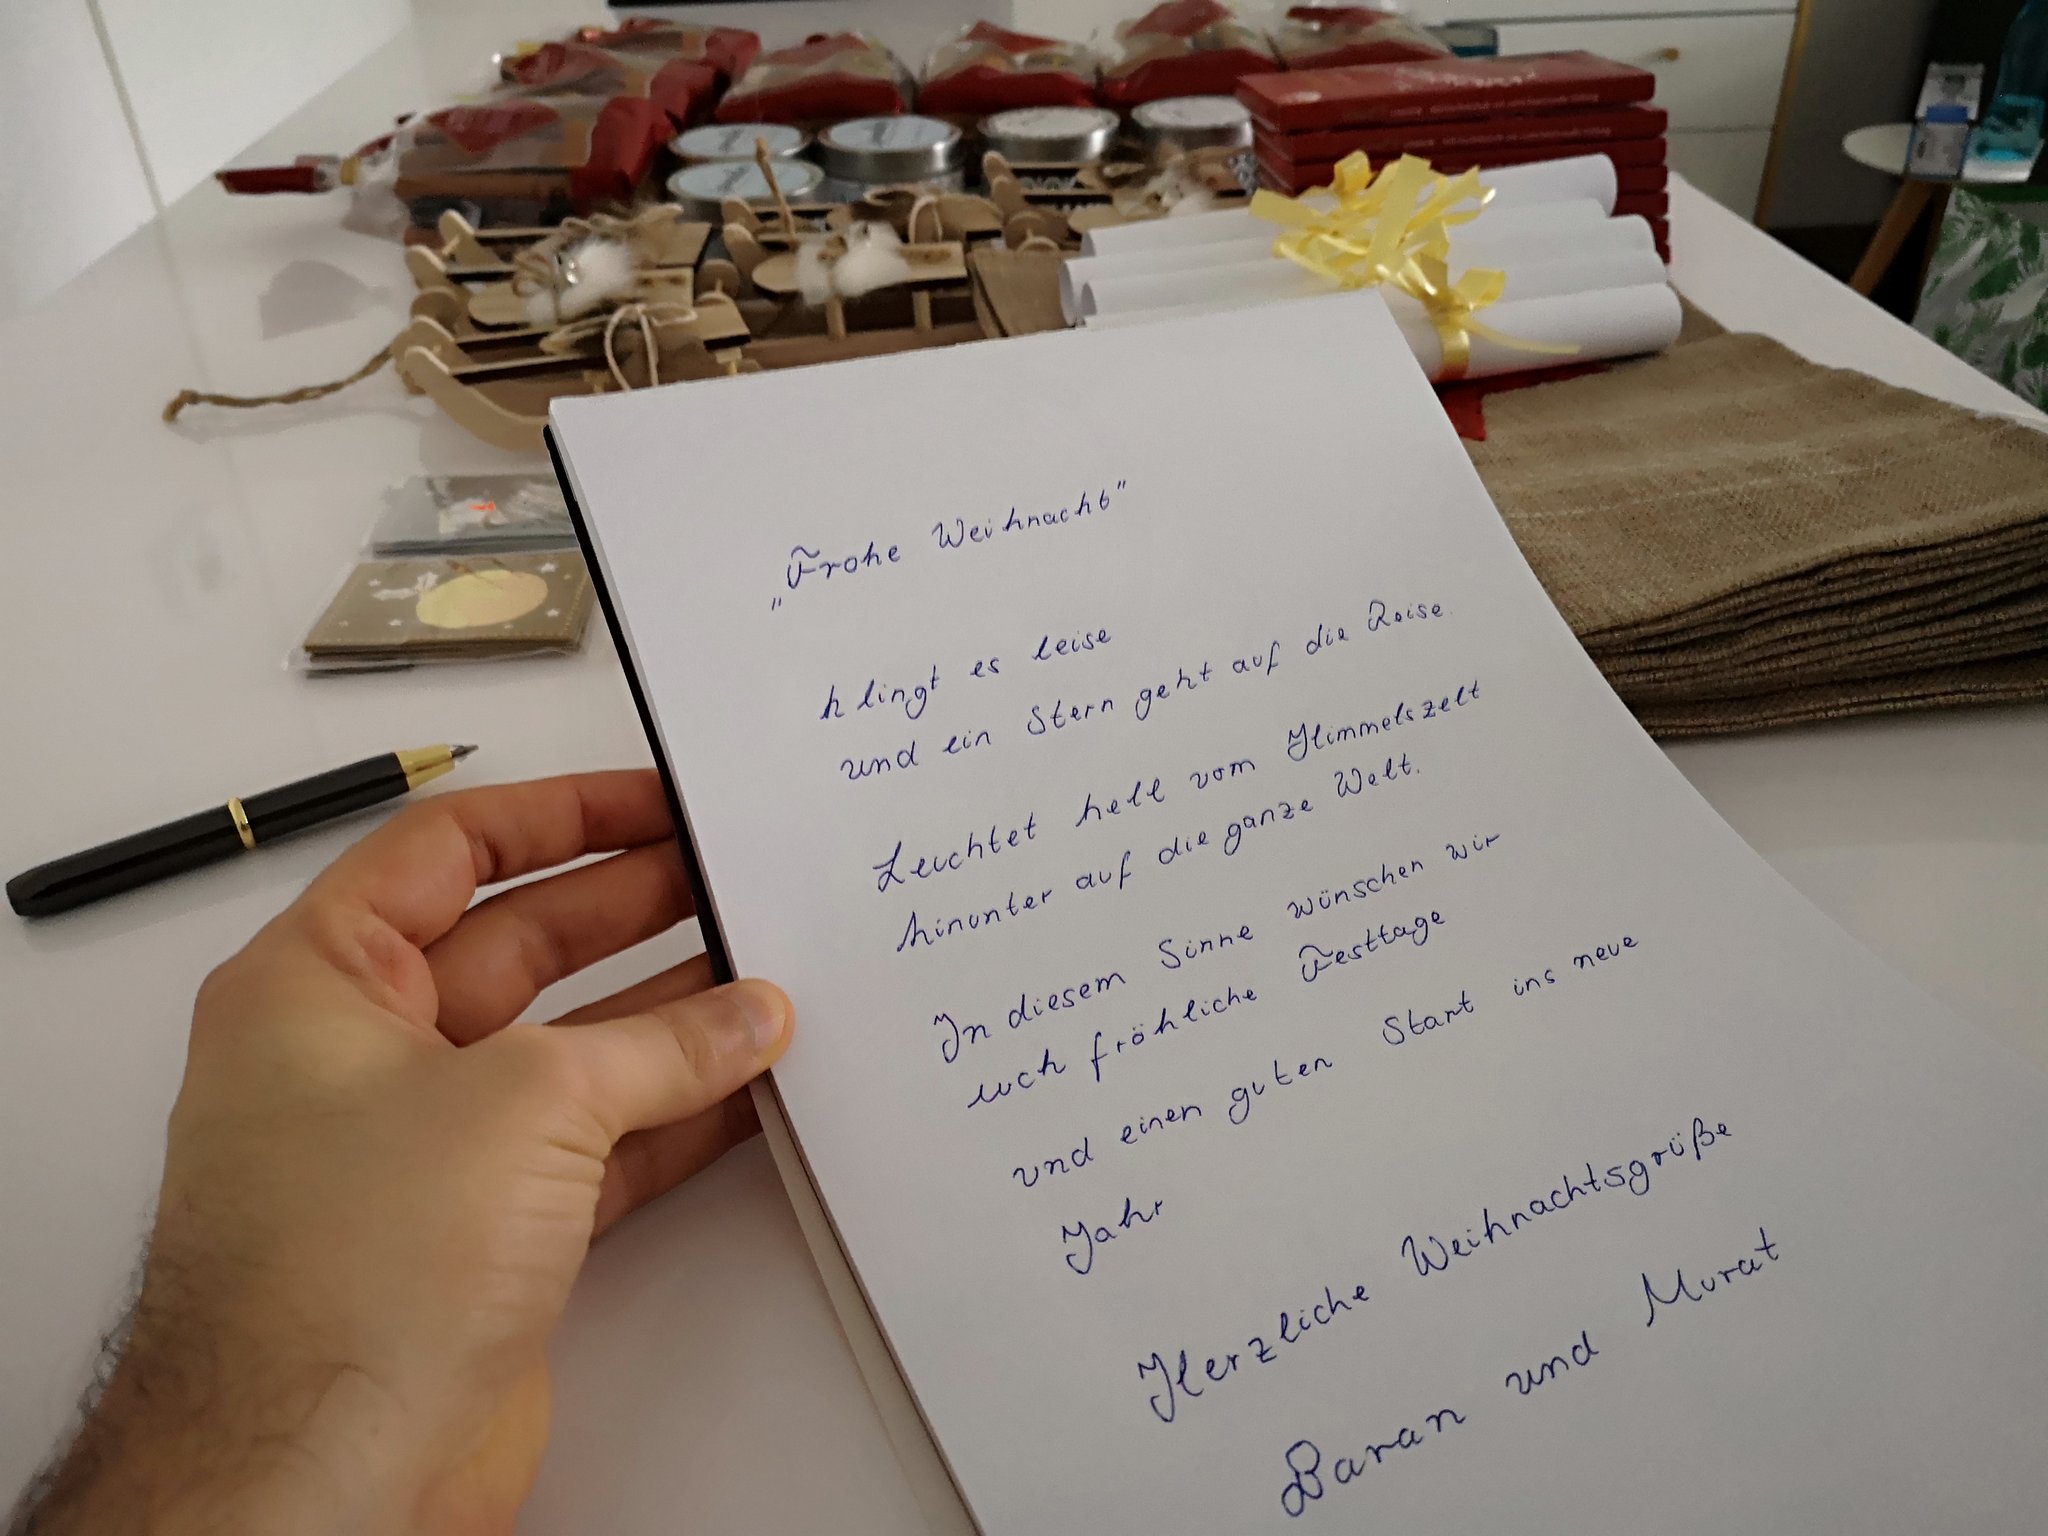 „Frohe Weihnacht"
klingt es leise
und ein Stern geht auf die Reise.
Leuchtet hell vom Himmelszelt
hinunter auf die ganze Welt.
In diesem Sinne wünschen wir
euch fröhliche Festtage
und einen guten Start ins neue
Jahr
Herzliche Weihnachtsgrüße
Baran und Murat